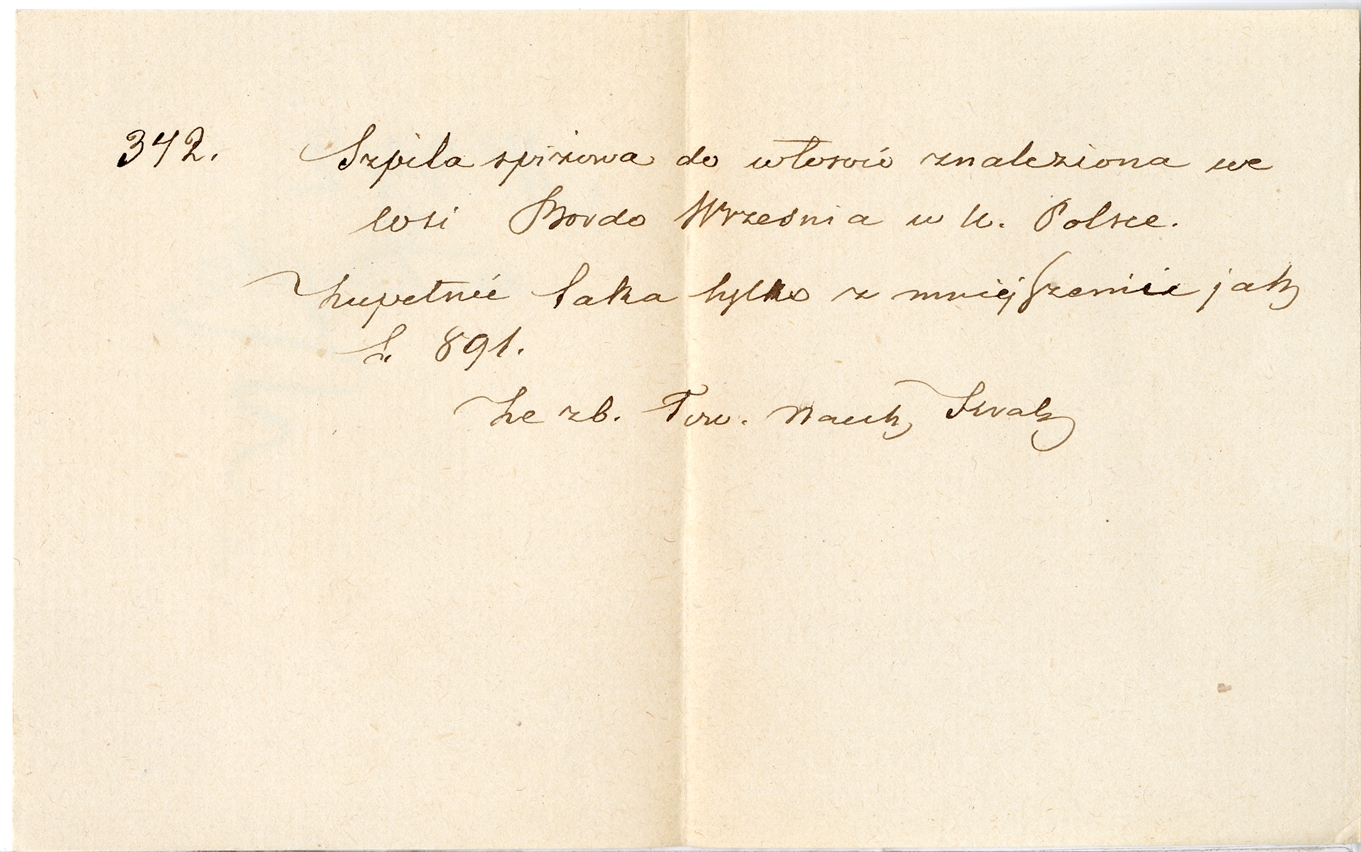 342. Szpila spiżowa do włosów znaleziona we
wsi Bordo Września w k. Polsce.
Zupełnie taka tylko z mniejszemi jak
L. 891.
Ze zb. Tow. Nauk, Krak,